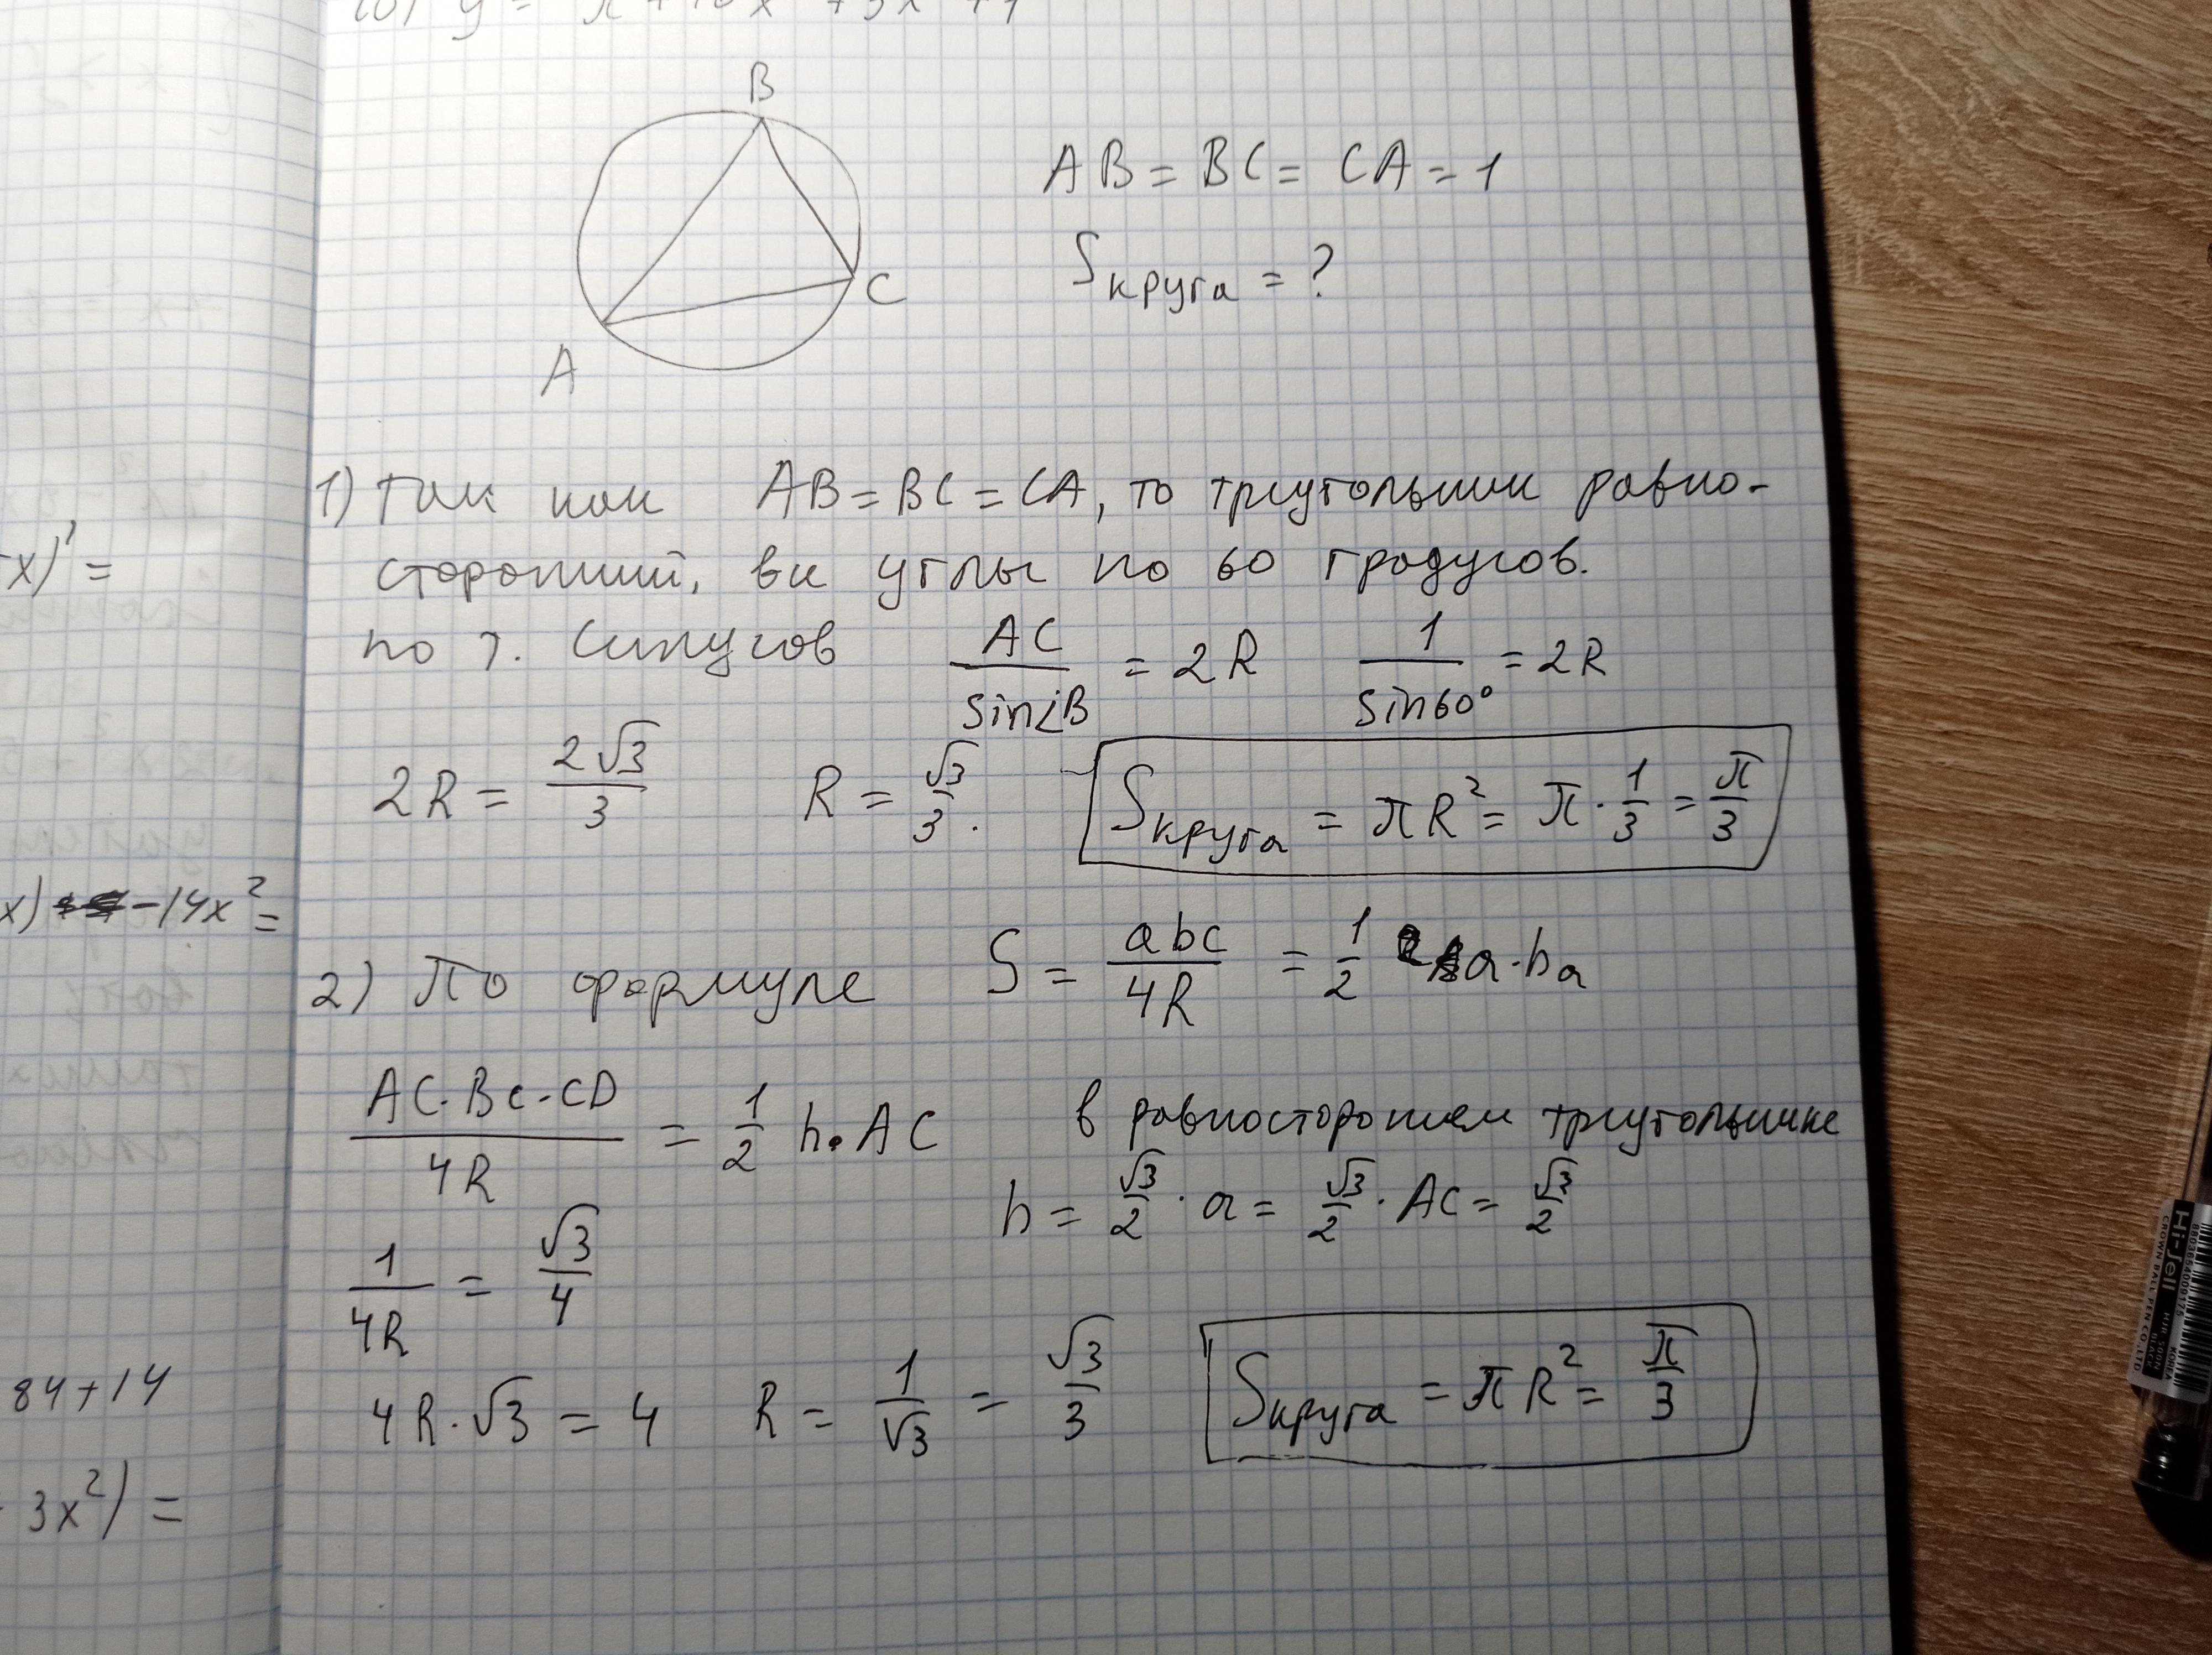 B
A
C
AB = BC = CA = 1
Sкруга = ?
1) Так как AB = BC = CA, то треугольник равно-
сторонний, все углы по 60 градусов.
по т. Синусов AC/sin∠B = 2R 1/sin60° = 2R
2R = 2√3/3 R = √3/3. Sкруга = πR² = π · 1/3 = π/3
2) По формуле S = abc/4R = 1/2 a · hₐ
AC · BC · CD/4R = 1/2 h · AC в равностороннем треугольнике
h = √3/2 · a = √3/2 · AC = √3/2
1/4R = √3/4
4R · √3 = 4 R = 1/√3 = √3/3 Sкруга = πR² = π/3
x)' =
x) -14x² =
84 + 14
3x²) =
Hi-Jell
HJR-500N
BLACK
KOREA
CROWN BALL PEN CO.,LTD